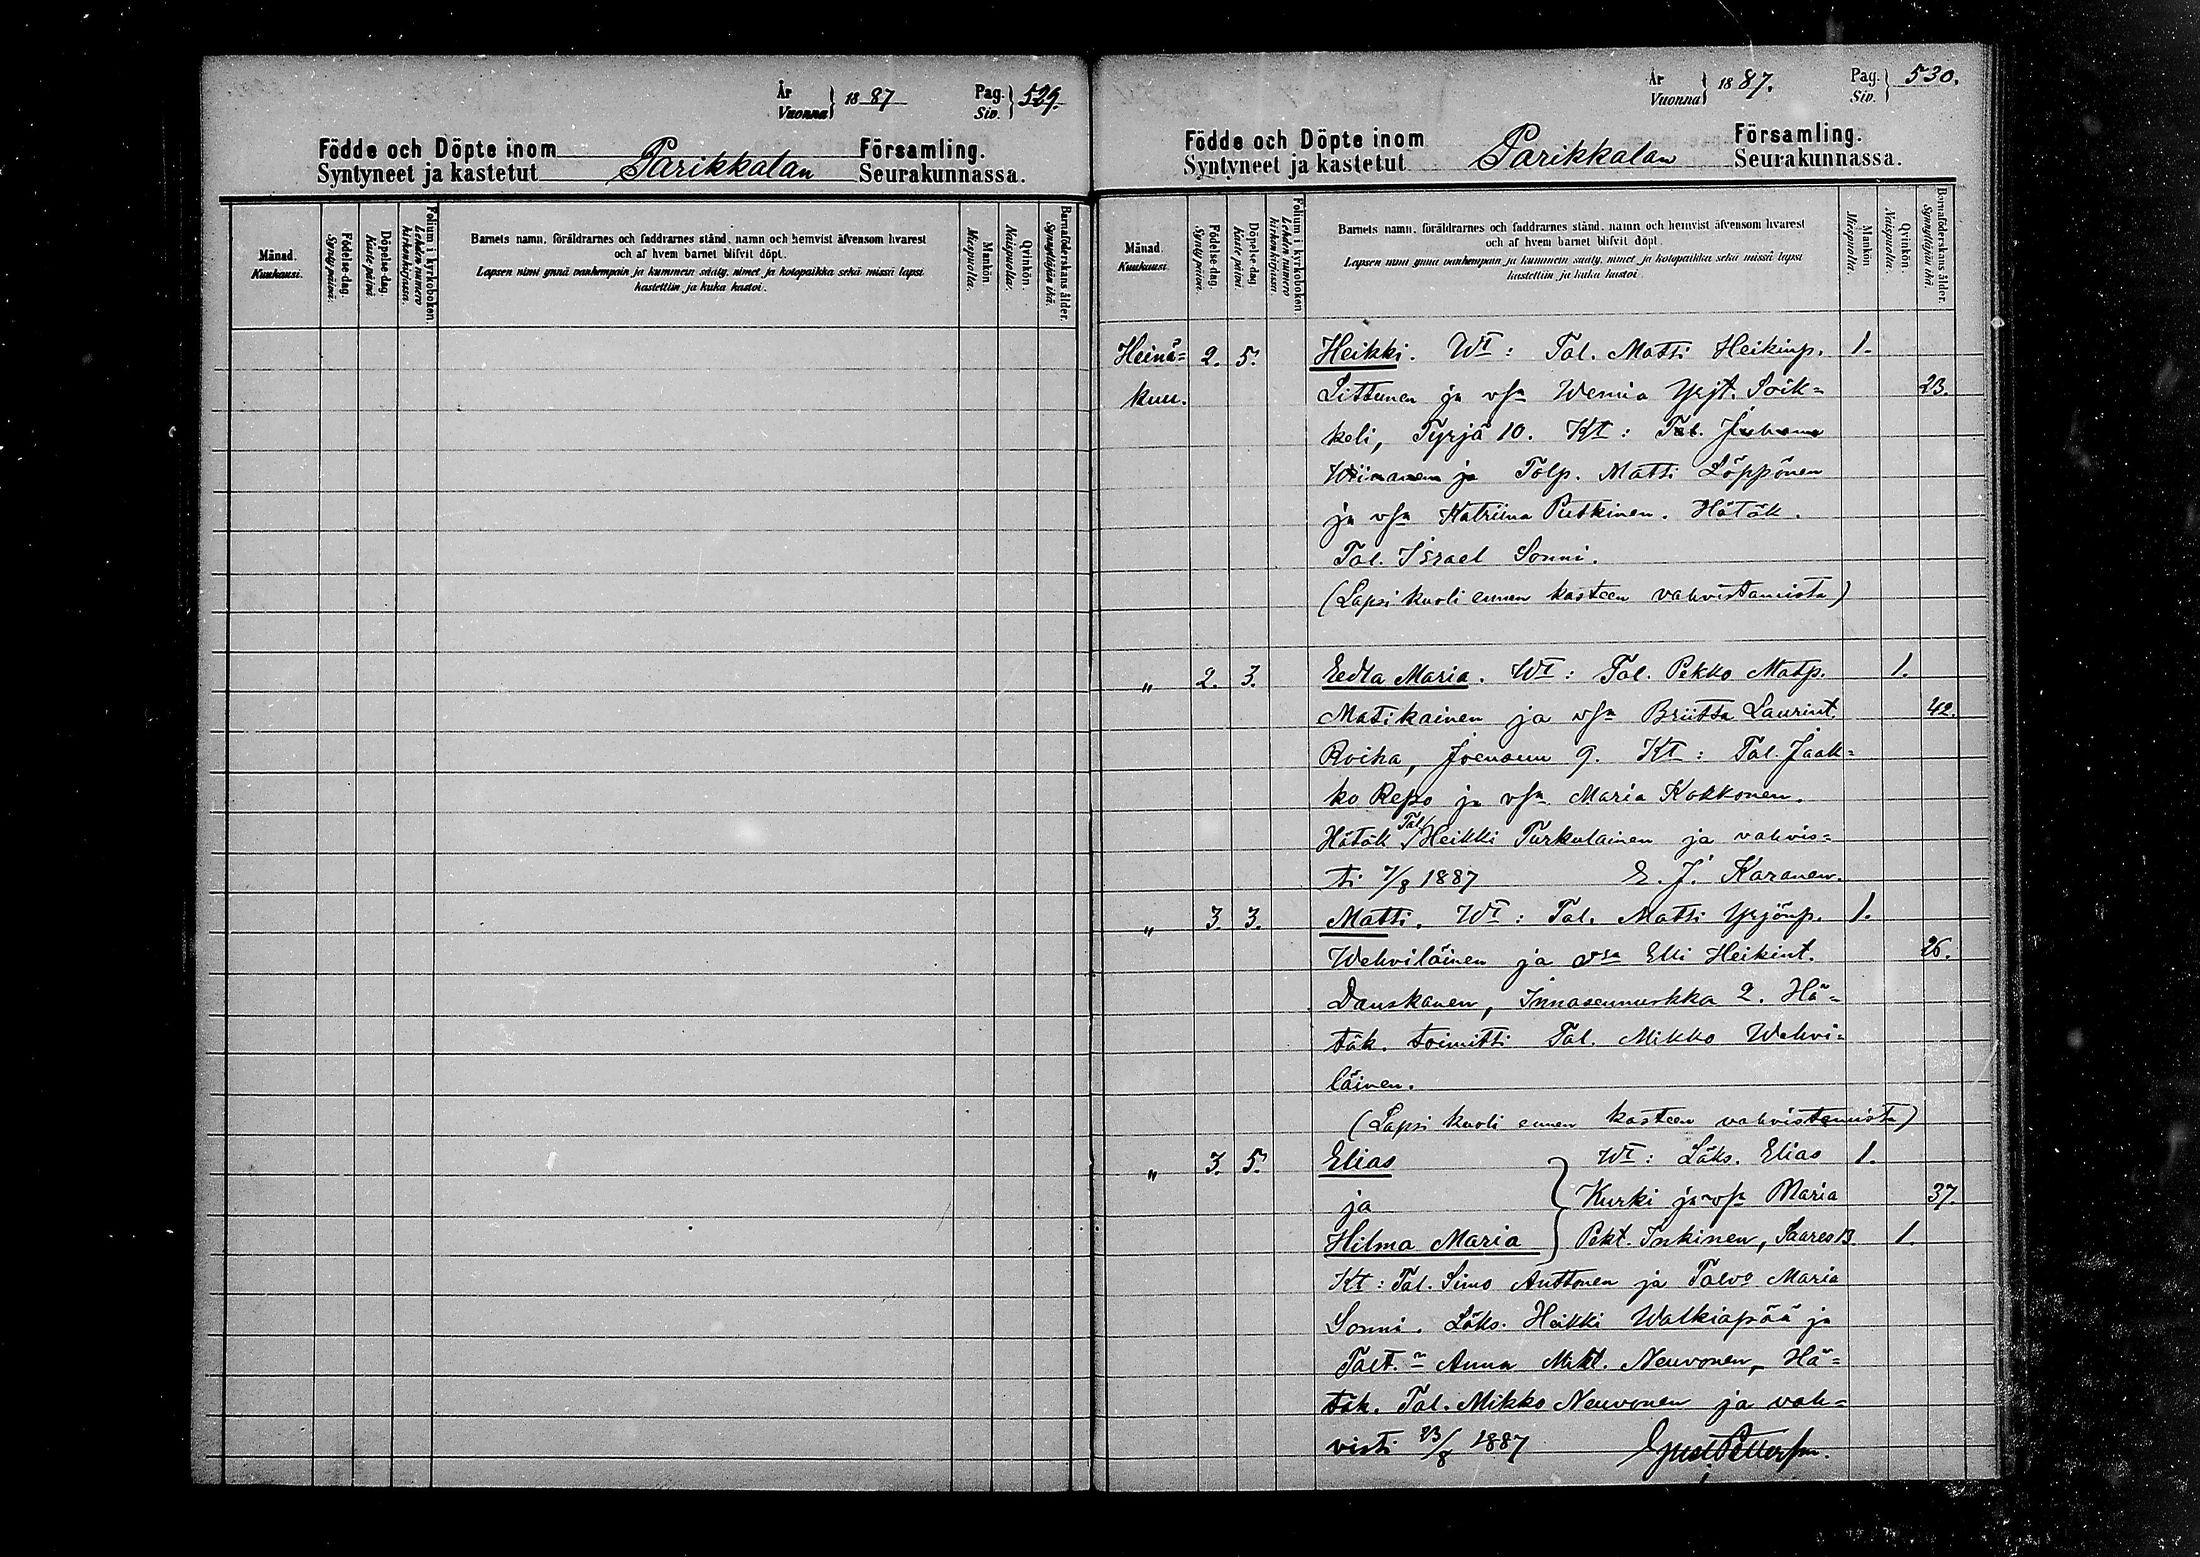 År
Vuonna } 1887
Pag.
Siv. } 529.
Födde och Döpte inom Parikkalan Församling.
Syntyneet ja kastetut Seurakunnassa.
Månad.
Kuukausi.
Födelse-dag.
Syntypäivä.
Döpelse-dag.
Kaste-päivä
Folium i kyrkoboken.
Lehden numero kirkonkirjassa.
Barnets namn, föräldrarnes och faddrarnes stånd, namn och hemvist äfvensom hvarest
och af hvem barnet blifvit döpt.
Lapsen nimi ynnä vanhempain ja kummein sääty, nimet ja kotopaikka sekä missä lapsi
kastettiin ja kuka kastoi.
Mankön
Miespuolia.
Qvinkön.
Naispuolia.
Barnaföderskans ålder.
Synnyttäjän ikä.
År
Vuonna } 1887.
Pag.
Siv. } 530.
Födde och Döpte inom Parikkalan Församling.
Syntyneet ja kastetut Seurakunnassa.
Månad.
Kuukausi.
Födelse-dag.
Syntypäivä.
Döpelse-dag.
Kaste-päivä
Folium i kyrkoboken
Lehden numero kirkonkirjassa.
Barnets namn, föräldrarnes och faddrarnes stånd, namn och hemvist äfvensom hvarest
och af hvem barnet blifvit döpt.
Lapsen nimi ynnä vanhempain ja kummein sääty, nimet ja kotopaikka sekä missä lapsi
kastettiin ja kuka kastoi.
Mankön
Miespuolia.
Qvinkön.
Naispuolia.
Barnaföderskans ålder.
Synnyttäjän ikä.
Heinä= 2. 5. Heikki. Wt: Tal. Matti Heikinp. 1.
kuu. Littunen ja vsa Wenia Yrjt. Soik= 23.
keli, Tyrjä 10. Kt: Tal. Juhana
Wiinanen ja Tolp. Matti Löppönen
ja vsa Katriina Putkinen. Hätäk.
Tal. Israel Sonni.
(Lapsi kuoli ennen kasteen vahvistamista)
" 2. 3. Eedla Maria. Wt: Tal. Pekko Matp. 1.
Matikainen ja vsa Briitta Laurint. 42.
Roiha, Joensuu 9. Kt: Tal. Jaak=
ko Repo ja vsa Maria Kokkonen.
Hätäk Tal. Heikki Turkulainen ja vahvis=
ti 7/8 1887 E. J. Karanen.
" 3. 3. Matti. Wt: Tal. Matti Yrjönp. 1.
Wehviläinen ja vsa Elli Heikint. 26.
Danskanen, Innasennurkka 2. Hä=
täk. toimitti Tal. Mikko Wehvi=
läinen.
(Lapsi kuoli ennen kasteen vahvistamista)
" 3. 5. Elias } Wt: Läks. Elias 1.
ja Kurki ja vsa Maria 37.
Hilma Maria Pekt. Inkinen, Saares 13. 1.
Kt: Tal. Simo Anttonen ja Talvo Maria
Sonni. Läks. Heikki Walkiapää ja
Talt. n Anna Mikt. Neuvonen, Hä=
täk. Tal. Mikko Neuvonen ja vah=
visti 23/8 1887